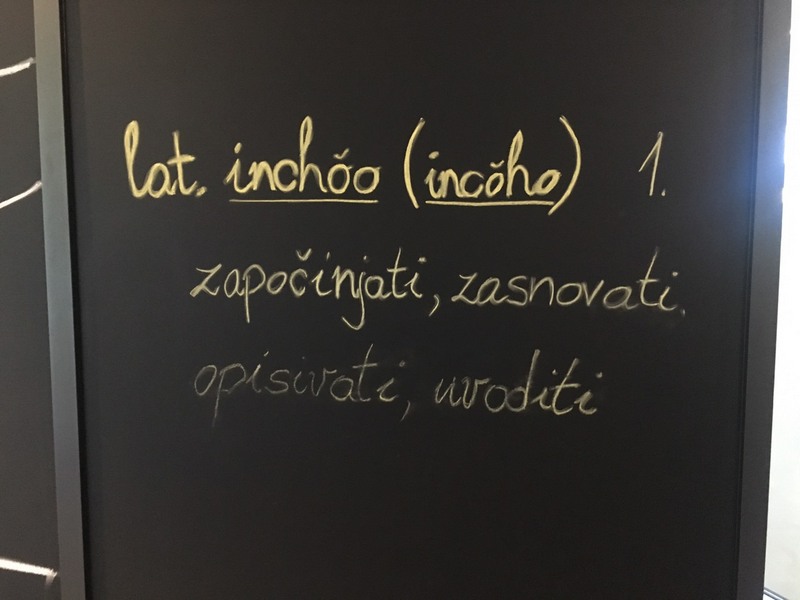 lat. inchŏo (incŏho) 1.
započinjati, zasnovati.
opisivati, uvoditi